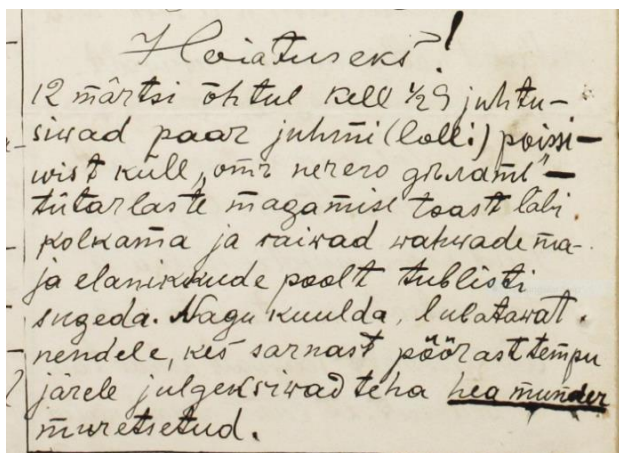 Hoiatuseks!
12 märtsi õhtul kell ½9 juhtu-
siwad paar juhmi (lolli) poissi –
wist küll „ –
tütarlaste magamise toast läbi
kolkama ja saiwad wahwade ma-
ja elanikkude poolt tublisti
sugeda. Nagu kuulda, lubatawat
nendele, kes sarnast pöörast tempu
järele julgeksiwad teha hea munder
muretsetud.